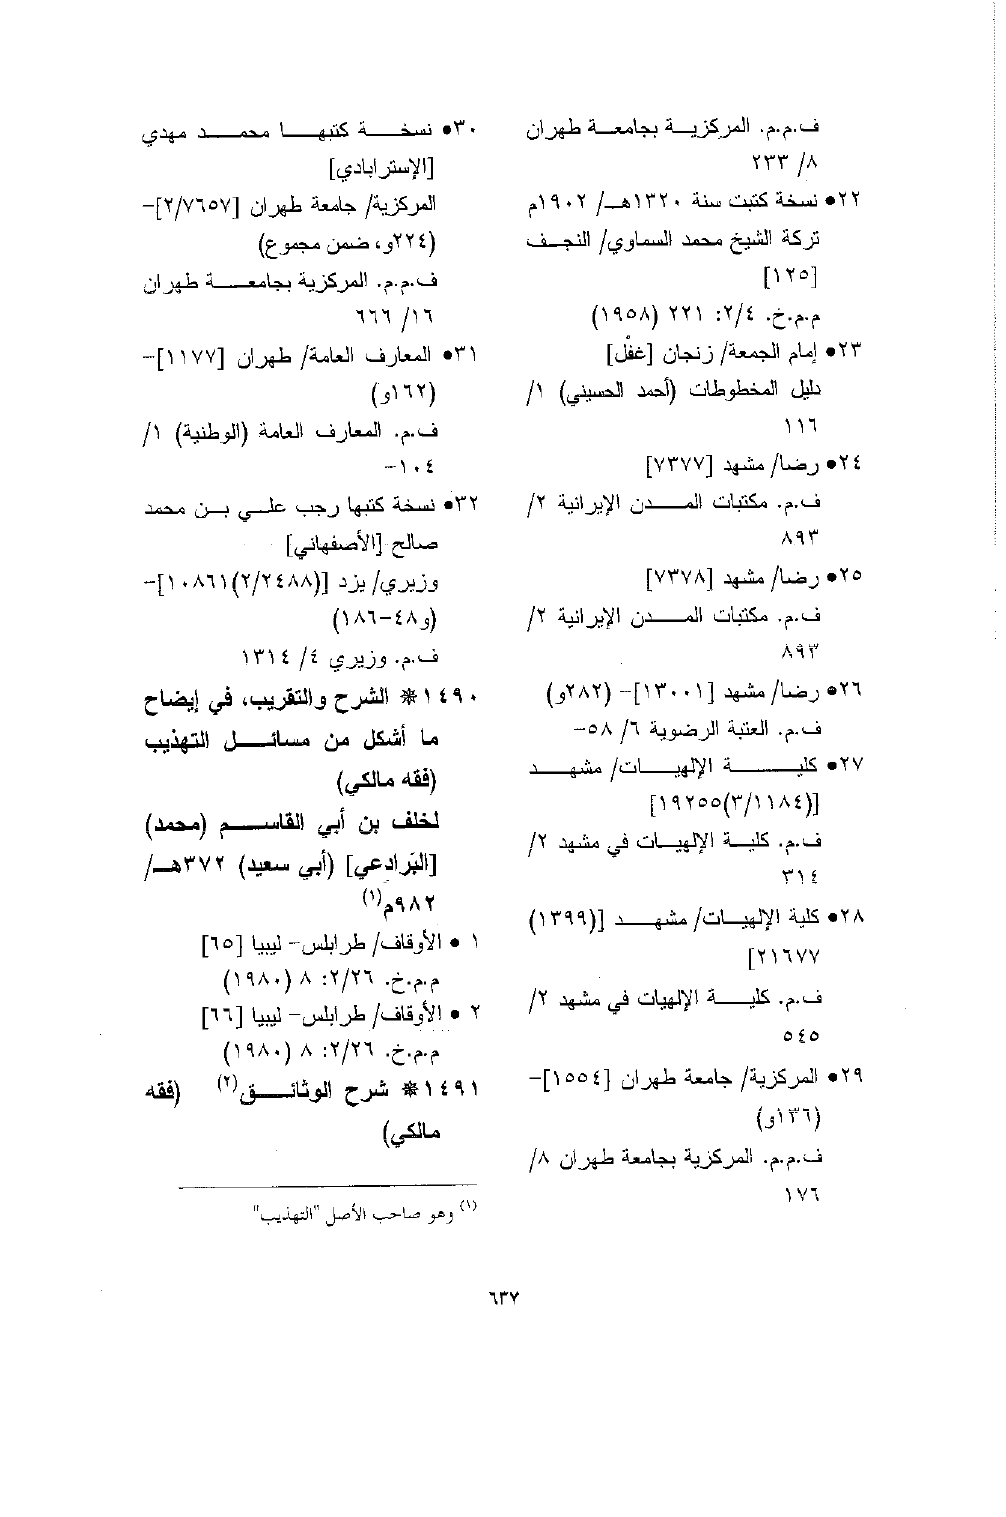 ف.م.م. المركزية بجامعة طهران
٨/ ٢٣٣
٢٢• نسخة كتبت سنة ١٣٢٠هـ/ ١٩٠٢م
تركة الشيخ محمد السماوي/ النجف
[١٢٥]
م.م.خ. ٢/٤: ٢٢١ (١٩٥٨)
٢٣• إمام الجمعة/ زنجان [غفْل]
دليل المخطوطات (أحمد الحسيني) ١/
١١٦
٢٤• رضا/ مشهد [٧٣٧٧]
ف.م. مكتبات المدن الإيرانية ٢/
٨٩٣
٢٥• رضا/ مشهد [٧٣٧٨]
ف.م. مكتبات المدن الإيرانية ٢/
٨٩٣
٢٦• رضا/ مشهد [١٣٠٠١]- (٢٨٢و)
ف.م. العتبة الرضوية ٦/ ٥٨-
٢٧• كلية الإلهيات/ مشهد
[(٣/١١٨٤)١٩٢٥٥]
ف.م. كلية الإلهيات في مشهد ٢/
٣١٤
٢٨• كلية الإلهيات/ مشهد [(١٣٩٩)
٢١٦٧٧]
ف.م. كلية الإلهيات في مشهد ٢/
٥٤٥
٢٩• المركزية/ جامعة طهران [١٥٥٤]-
(١٣٦و)
ف.م.م. المركزية بجامعة طهران ٨/
١٧٦
٣٠• نسخة كتبها محمد مهدي
[الإسترابادي]
المركزية/ جامعة طهران [٢/٧٦٥٧]-
(٢٢٤و، ضمن مجموع)
ف.م.م. المركزية بجامعة طهران
١٦/ ٦٦٦
٣١• المعارف العامة/ طهران [١١٧٧]-
(١٦٢و)
ف.م. المعارف العامة (الوطنية) ١/
١٠٤-
٣٢• نسخة كتبها رجب علي بن محمد
صالح [الأصفهاني]
وزيري/ يزد [(٢/٢٤٨٨)١٠٨٦١]-
(و٤٨-١٨٦)
ف.م. وزيري ٤/ ١٣١٤
١٤٩٠* الشرح والتقريب، في إيضاح
ما أشكل من مسائل التهذيب
(فقه مالكي)
لخلف بن أبي القاسم (محمد)
[البَرادعي] (أبي سعيد) ٣٧٢هـ/
٩٨٢م(١)
١ • الأوقاف/ طرابلس- ليبيا [٦٥]
م.م.خ. ٢/٢٦: ٨ (١٩٨٠)
٢ • الأوقاف/ طرابلس- ليبيا [٦٦]
م.م.خ. ٢/٢٦: ٨ (١٩٨٠)
١٤٩١* شرح الوثائق(٢) (فقه
مالكي)
(١) وهو صاحب الأصل "التهذيب"
٦٣٧